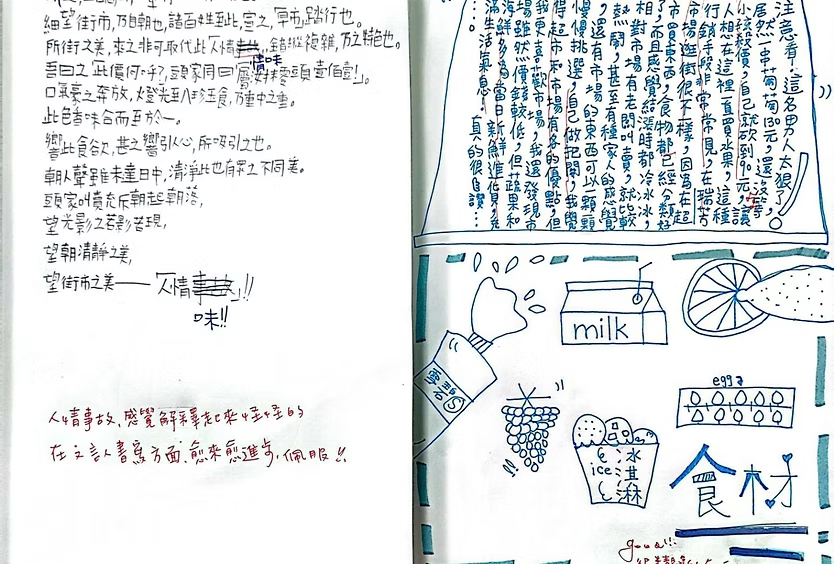 細望街市,乃自朝也,諸百姓至此,宣之,
所街之美,來之非可取代此「人情味」,錯綜複雜,乃之特色也。
吾曰之「此價何乎?」頭家同曰
口氣豪之奔放,燈光至八珍玨食,乃重中之重。
此色香味合而至於一。
響此食欲,甚之響引人心,所吸引之也。
朝人聲雖未達日中,清淨此也有買之不同美。
頭家叫賣充斥朝起朝落,
望光影之若影若現,
望朝清靜之美,
望街市之美——「人情事故」!!
味!!
人情事故,感覺解釋起來怪怪的
在文言書寫方面,愈來愈進步,佩服!!
注意看,這名男人太狠了,
居然一串葡萄130元,還沒等
小孩殺價,自己就砍到90元,讓
人相在這裡一直買水果,這種
行銷手段非常常見,在瑞芳
市場逛街很不一樣,因為在超
市買東西,食物都已經分類好
了,而且感覺結漲時都冷冰冰,
相對市場有老闆叫賣,就比較
熱鬧,甚至有種家人的感覺
,還有市場的東西可以一顆顆
慢慢挑選,自己做把關,我覺
得超市和市場有各的優點,但
我更喜歡市場,我還發現市
場雖然價錢較低,但蔬果和
海鮮多為當日新鮮進貨,充
滿生活氣息!真的很讚…
…。
milk
eggs
冰淇淋
ice
食材
good!!!